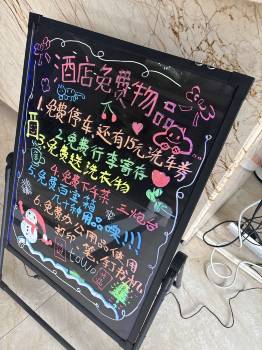 酒店免费物品
1.免费停车,还有15元洗车券
2.免费行李寄存
3.免费送洗衣物
4.免费下午茶
5.免费百宝箱
几十种用品噢!!!
6.免费办公用品使用
打印